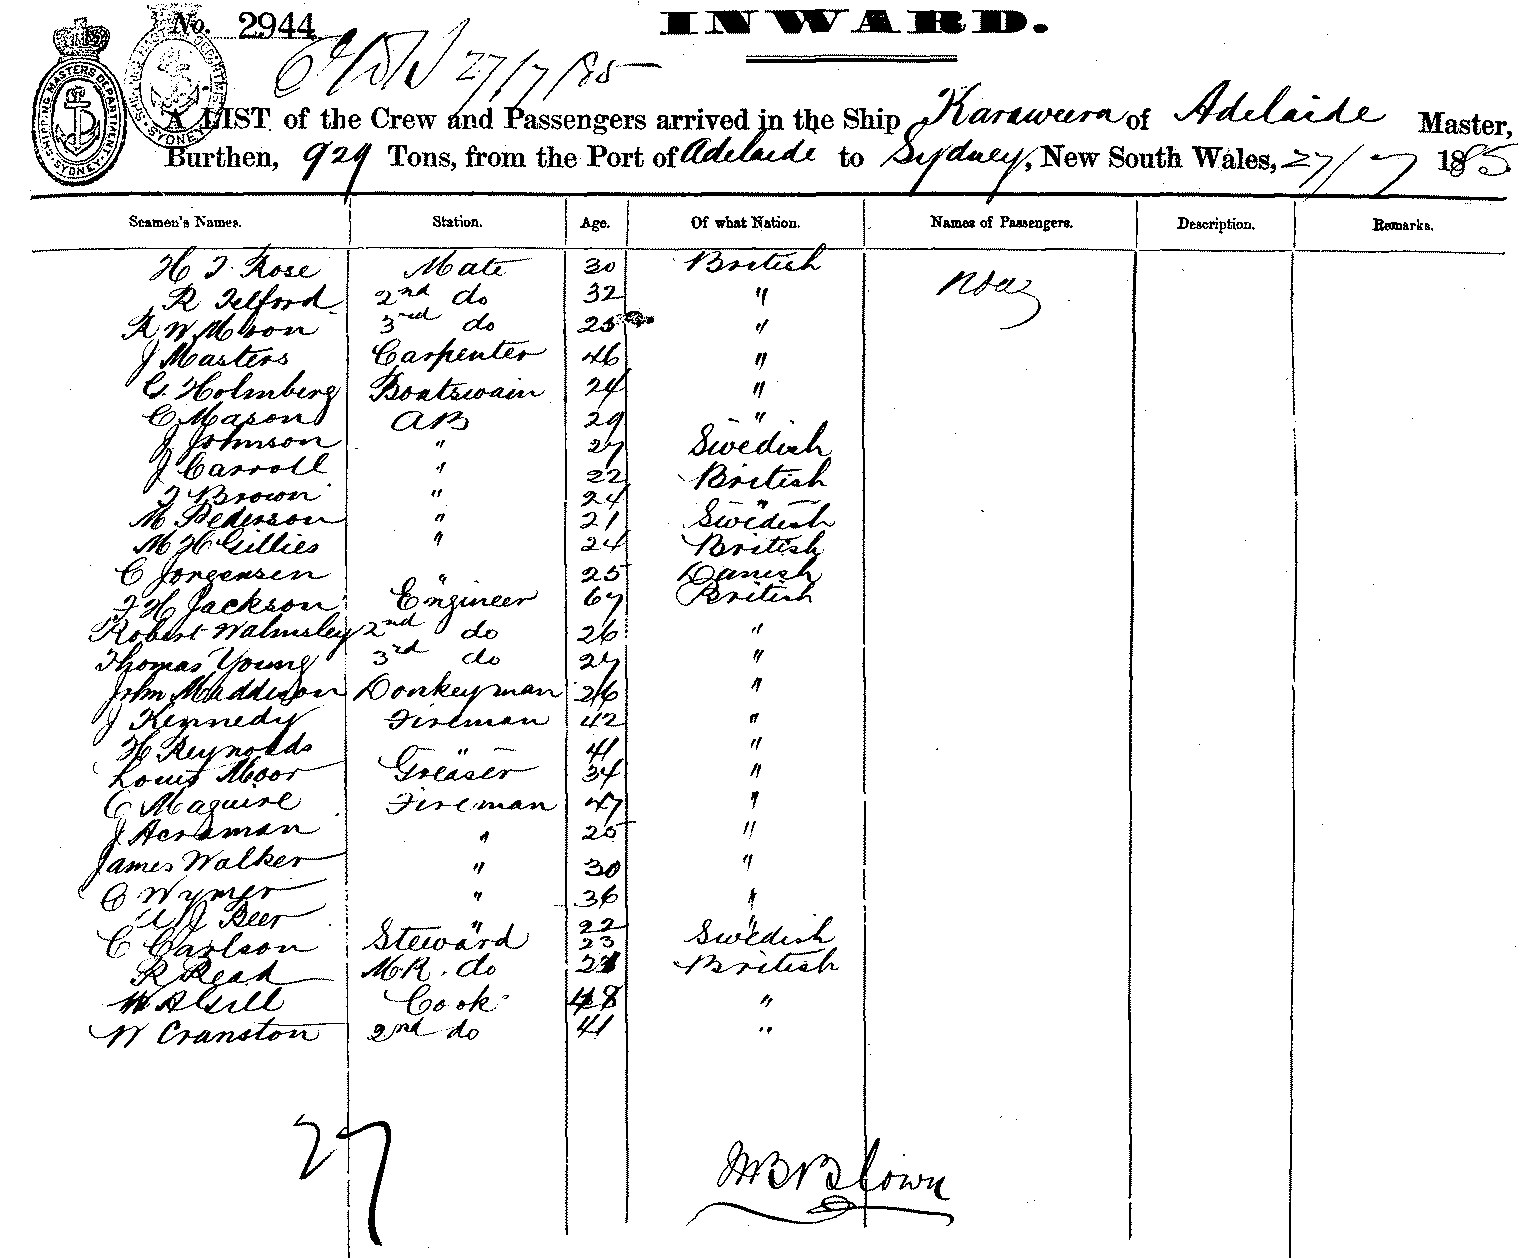 No. 2944 INWARD.
27/7/85
A LIST of the Crew and Passengers arrived in the Ship Karaweera of Adelaide Master,
Burthen, 929 Tons, from the Port of Adelaide to Sydney, New South Wales, 27/7 1885
SHIPPING MASTERS DEPARTMENT SYDNEY
Seamen's Names. Station. Age. Of what Nation. Names of Passengers. Description. Remarks.
H J Rose Mate 30 British
R Telford 2nd do 32 "
R W Moon 3rd do 25 "
J Masters Carpenter 46 "
G. Holmberg Boatswain 24 "
C Mason AB 29 "
J Johnson " 27 Swedish
J Carroll " 22 British
J Brown " 24 "
M Pederson " 21 Swedish
M H Gillies " 24 British
C Jorgensen " 25 Danish
J H Jackson Engineer 67 British
Robert Walmsley 2nd do 26 "
Thomas Young 3rd do 27 "
John Maddison Donkeyman 26 "
J Kennedy Fireman 42 "
H Reynolds " 41 "
Louis Moor Greaser 34 "
C Maguire Fireman 47 "
J Acraman " 25 "
James Walker " 30 "
C Wymer " 36 "
J Beer " 22 "
C Carlson Steward 23 Swedish
R Read M.R. do 21 British
W A Gill Cook 48 "
W Cranston 2nd do 41 "
27